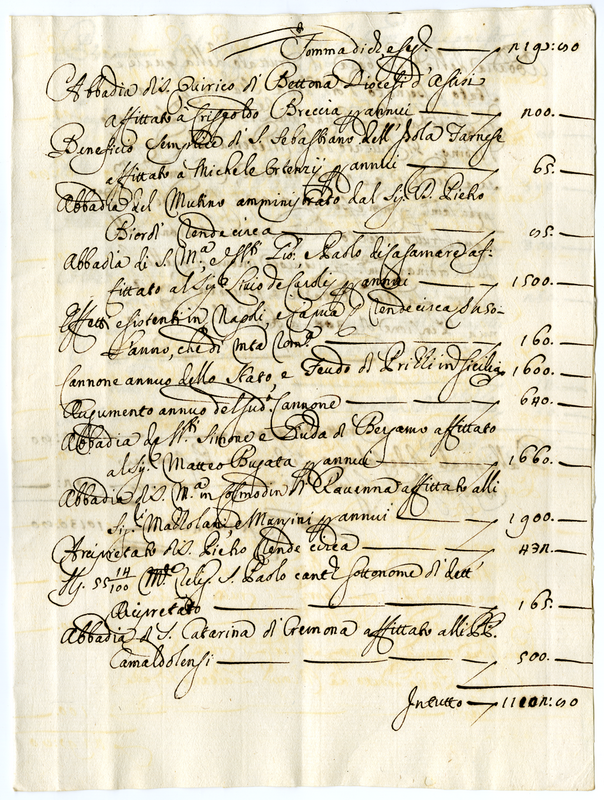 Somma di là e seg. — 2192:90
Abbadia di S. Quirico di Bettona Diocesi d'Asisi
affittata a Crispoldo Breccia p annui — 200.—
Beneficio Semplice di S. Sebastiano dell'Isola Farnese
affittato a Michele Ortenzij p annui — 65.—
Abbadia del Mutino amministrata dal Sig. D. Pietro
Biordi rende circa — 95.—
Abbadia di S. M.a, e SS.ti Gio: e Paolo di Casamare af-
fittato al Sig.r Livio de Carolis p annui — 1500.—
Effetti esistenti in Napoli, e Capua rende circa
l'anno, che di mta Rom.a — 160.—
Cannone annuo dello Stato, e Feudo di Prizzi in Sicilia 1600.—
Augumento annuo del sud.o Cannone — 640.—
Abbadia de SS.ti Simone e Giuda di Bergamo affittato
al Sig.r Matteo Pugata p annui — 1660.—
Abbadia di S. M.a in Cosmedin di Ravenna affittato alli
Sig.ri Mattolani, e Manzini p annui — 1900.—
Arcipretato di S. Pietro rende circa — 432.—
55 14/100 M.ti S. Paolo cant sotto nome di dett'
Arcipretato — 165.—
Abbadia di S. Catarina di Cremona affittato alli PP.
Camaldolensi — 500.—
In tutto — 11102:90